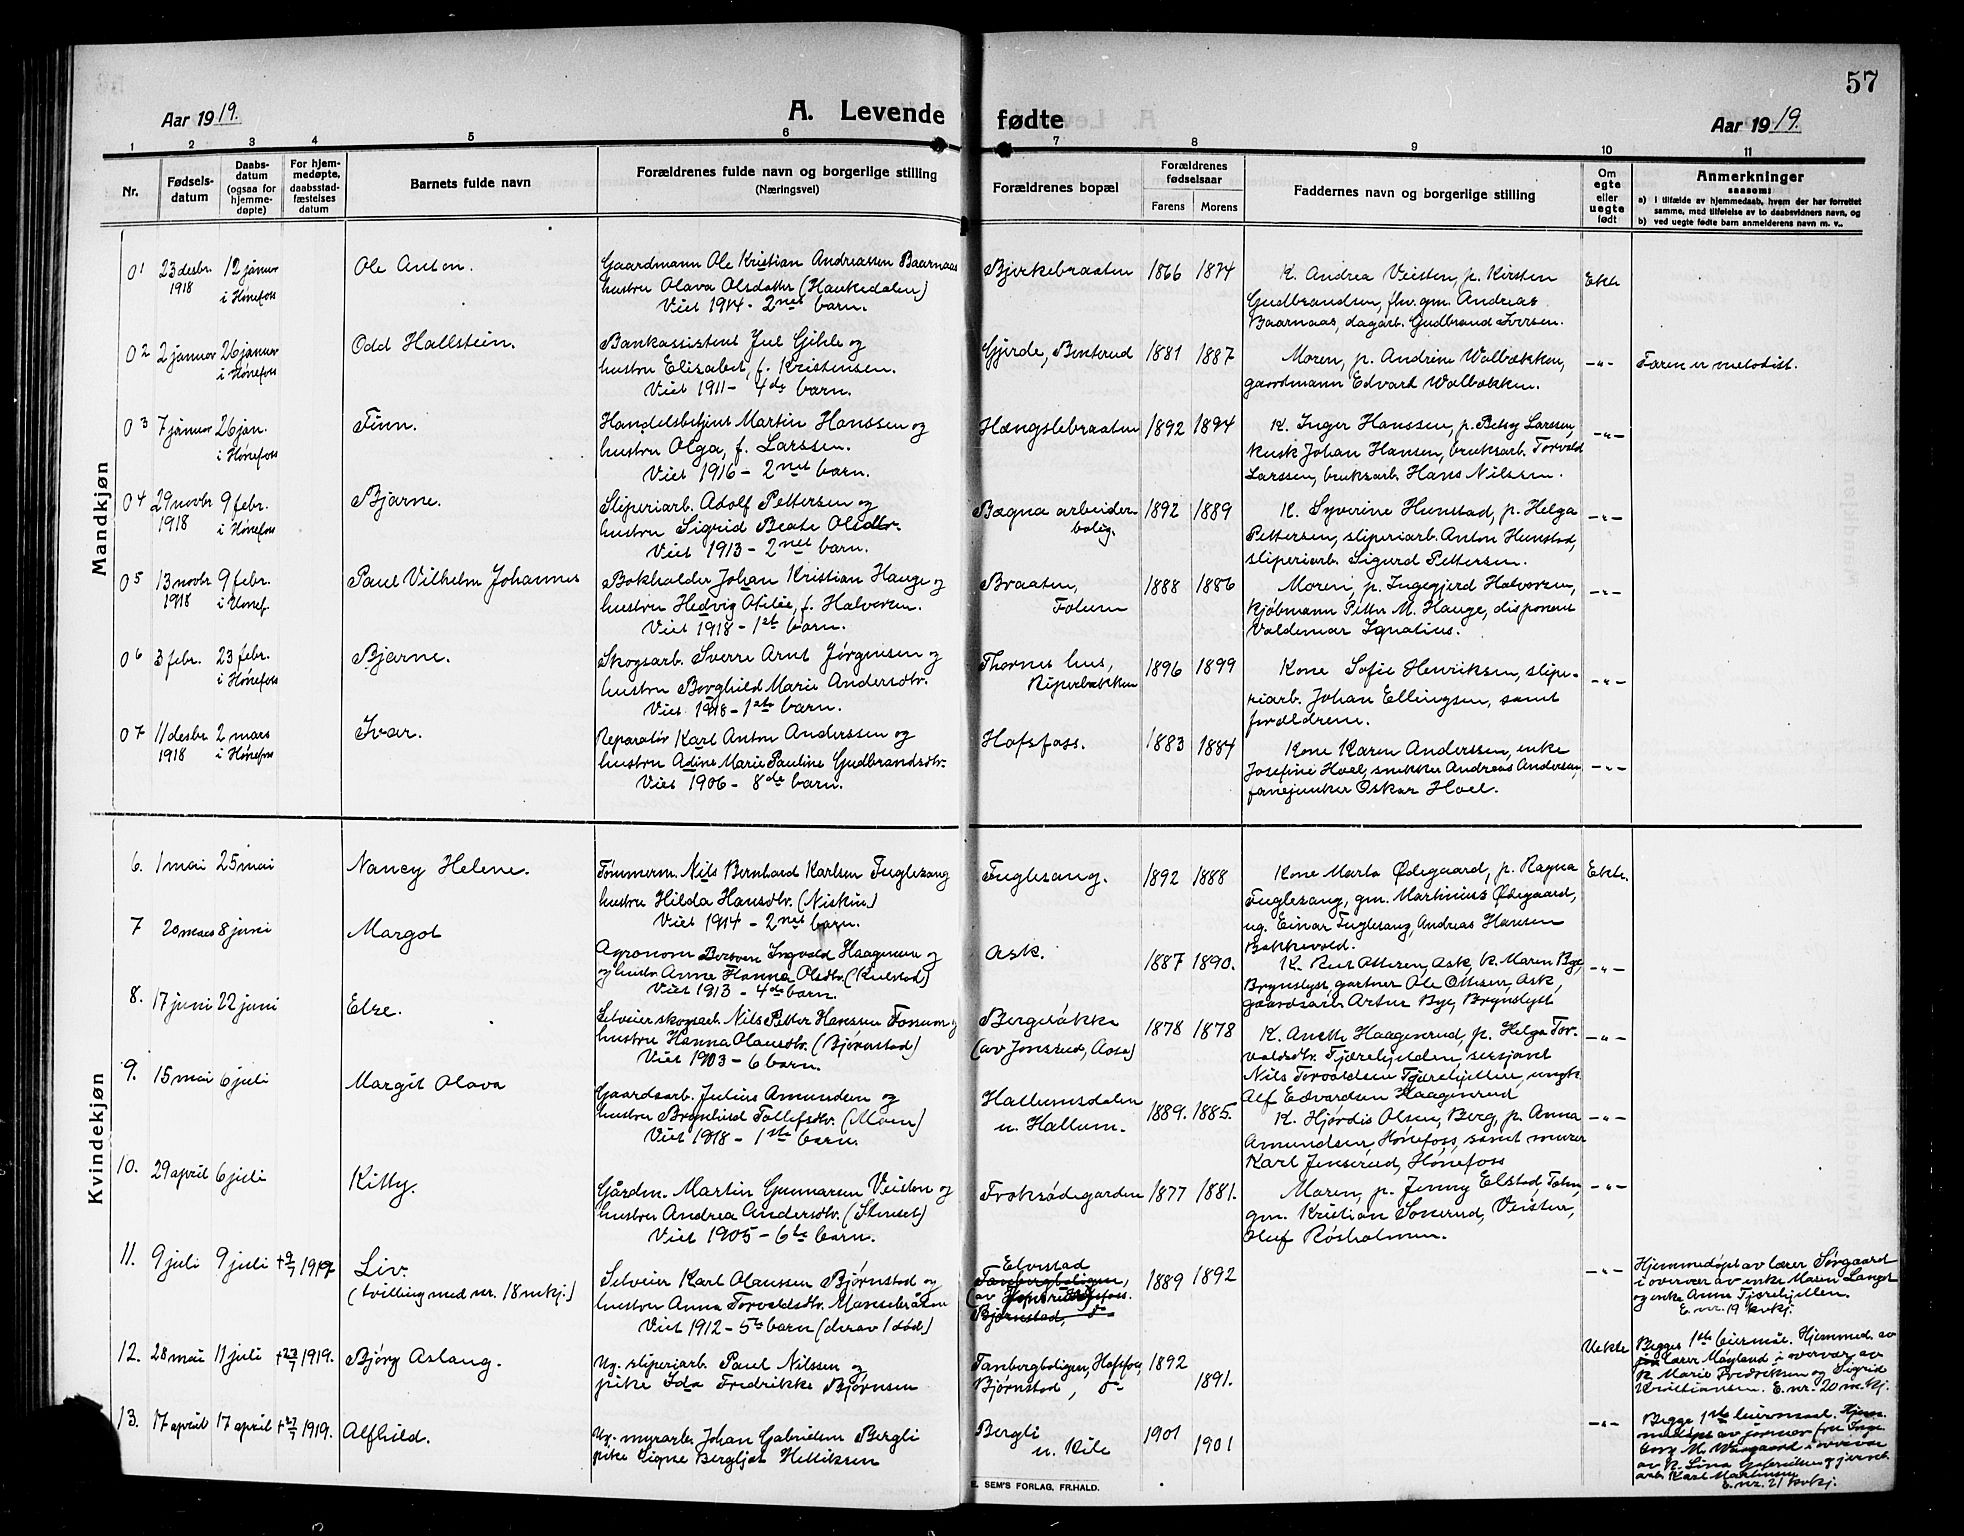 57
Aar 1919.
A. Levende fødte
Aar 1919.
1 2 3 4 5 6 7 8 9 10 11
Nr.
Fødselsdatum
Daabsdatum (ogsaa for hjemmedøpte)
For hjemmedøpte, daabsstadfæstelses datum
Barnets fulde navn
Forældrenes fulde navn og borgerlige stilling
(Næringsvei)
Forældrenes bopæl
Forældrenes fødselsaar
Farens Morens
Faddernes navn og borgerlige stilling
Om egte eller uegte født
Anmerkninger
saasom:
a) i tilfælde av hjemmedaab, hvem der har forrettet samme, med tilføielse av to daabsvidners navn, og
b) ved uegte fødte barn anmelderens navn m. v..
Mandkjøn
01 23 desbr. 1918 12 januar i Hønefoss
Ole Anton.
Gaardmann Ole Kristian Andreassen Baarnaas
hustru Olava Olsdatter (Haukedalen)
Viet 1914 - 2net barn.
Bjerkebraaten 1866 1874
K. Andrea Veisten, p. Kirsten
Gudbrandsen, fhv. gm. Andreas
Baarnaas, dagarb. Gudbrand Iversen.
Ekte
02 2 januar 26 januar i Hønefoss
Odd Hallstein.
Bankassistent Jul Gihle og
hustru Elisabet, f. Kristensen.
Viet 1911 - 4de barn.
Gjerde, Benterud 1881 1887
Moren, p. Andrine Wolbækken,
gaardmann Edvart Wolbækken.
-"-
Faren er metodist.
03 7 januar 26 jan. i Hønefoss
Finn.
Handelsbetjent Martin Hanssen og
hustru Olga, f. Larssen.
Viet 1916 - 2net barn.
Hængslebraaten 1892 1894
K. Inger Hanssen, p. Betsy Larssen,
kusk Johan Hansen, bruksarb. Torvald
Larssen, bruksarb. Hans Nilssen.
-"-
04 29 novbr 1918 9 febr. i Hønefoss
Bjarne.
Sliperiarb. Adolf Pettersen og
hustru Sigrid Beate Olsdtr.
Viet 1913 - 2net barn.
Bægna arbeiderbolig. 1892 1889
K. Syverine Hunstad, p. Helga
Pettersen, sliperiarb. Anton Hunstad,
sliperiarb. Sigurd Pettersen.
-"-
05 13 novbr 1918 9 febr. i Hønef.
Paul Vilhelm Johannes
Bokholder Johan Kristian Hauge og
hustru Hedvig Otilie, f. Halvorsen.
Viet 1918 - 1et barn.
Braaten, Folum 1888 1886
Moren, p. Ingegjerd Halvorsen,
kjøbmann Petter M. Hauge, disponent
Valdemar Ignatius.
-"-
06 3 febr. 23 febr. i Hønefoss
Bjarne.
Skogsarb. Sverre Arnt Jørgensen og
hustru Borghild Marie Andersdtr.
Viet 1918 - 1ste barn.
Thornes hus, Riperbækken 1896 1899
Kone Sofie Henriksen, slipe-
riarb. Johan Ellingsen, samt
forældrene.
-"-
07 11 desbr. 1918 2 mars i Hønefoss
Ivar.
Reparatør Karl Anton Anderssen og
hustru Adine Marie Pauline Gudbrandsdtr.
Viet 1906 - 8de barn.
Hofsfoss. 1883 1884
Kone Karen Anderssen, enke
Josefine Hoel, snekker Andreas Andersen,
fanejunker Oskar Hoel.
-"-
Kvindekjøn
6. 1 mai 25 mai
Nancy Helene.
Tømmerm. Nils Bernhard Karlsen Fuglesang
hustru Hilda Hansdtr. (Niskin)
Viet 1914 - 2net barn.
Fuglesang. 1892 1888
Kone Marta Ødegaard, p. Ragna
Fuglesang, gm. Martinius Ødegaard,
ug. Einar Fuglesang, Andreas Hansen
Bakkevold.
Ekte.
7 20 mars 8 juni
Margot
Agronom Bersven Ingvald Haagensen og
hustru Anne Hanna Olsdtr.
Viet 1913 - 4de barn.
Ask. 1887 1890.
Ask, k. Maren Bye,
Brynslyst, gartner Ole Ottesen, Ask,
gaardsarb. Artur Bye, Brynslyst
-"-
8. 17 juni 22 juni
Else.
Selveier skogsarb. Nils Petter Hansen Fossum og
hustru Hanna Olausdtr. (Bjørnstad)
Viet 1903 - 6 barn.
Bergesbakke
(av Jonsrud, Aasa) 1878 1878
K. Anette Haagenrud, p. Helga Tor-
valdsdtr. Tjærehjellen, sersjant
Nils Torvaldsen Tjærehjellen, ungk.
Alf Edvardsen Haagenrud
-"-
9. 15 mai 6 juli
Margit Olava
Gaardsarb. Julius Amundsen og
hustru Brynhild Tollefsdtr. (Moen)
Viet 1918 - 1ste barn.
Hallumsdalen
u. Hallum. 1889. 1885.
K. Hjørdis Olsen, Berg, p. Anna
Amundsen, Hønefoss, samt murer
Karl Jenserud, Hønefoss
-"-
10. 29 april 6 juli
Kitty.
Gårdm. Martin Gunnarsen Veisten og
hustru Andrea Andersdtr. (Stenset)
Viet 1905 - 6te barn.
1877 1881.
Moren, p. Jenny Elstad
gm. Kristian Sonerud, Veisten,
Oluf Røsholmen.
-"-
11. 9 juli 9 juli +9/7 1919
Liv.
(tvilling med nr. 18 mkj.)
Selveier Karl Olaussen Bjørnstad og
hustru Anna Torvaldsdtr.
Viet 1912 - 5te barn (derav 1 død)
Elvestad
Tanbergboligen,
Bjørnstad, do 1889 1892
-"-
Hjemmedøpt av lærer Sørgaard
i overvær av enke Maren Langst
og enke Anne Tjærehjellen.
E. nr. 19 kvkj.
12. 28 mai 11 juli +23/7 1919.
Bjørg Aslaug.
Ug. sliperiarb. Paul Nilssen og
pike Ida Fredrikke Bjørnsen
Tanbergboligen, Hofsfos,
Bjørnstad, do 1892 1891.
Uekte
Begges 1ste leiermål. Hjemmed. av
lærer Moyland i overvær av
k. Marie Fredriksen og Sigrid
Kristiansen. E. nr. 20 m.kj.
13. 17 april 17 april +27/7 1919.
Alfhild.
Ug. myrarb. Johan Gabrielsen Bergli
pike Signe Bergljot Helliksen
Bergli
u. Kile 1901 1901
-"-
Begges 1ste leiermaal. Hjem-
medøpt av jormor fru Inge-
borg M. Waagaard i overvær
av k. Lina Gabrielsen og jernb.
arb. Karl Martinsen
E. nr. 21 kvkj.
E. SEM'S FORLAG, FR.HALD.